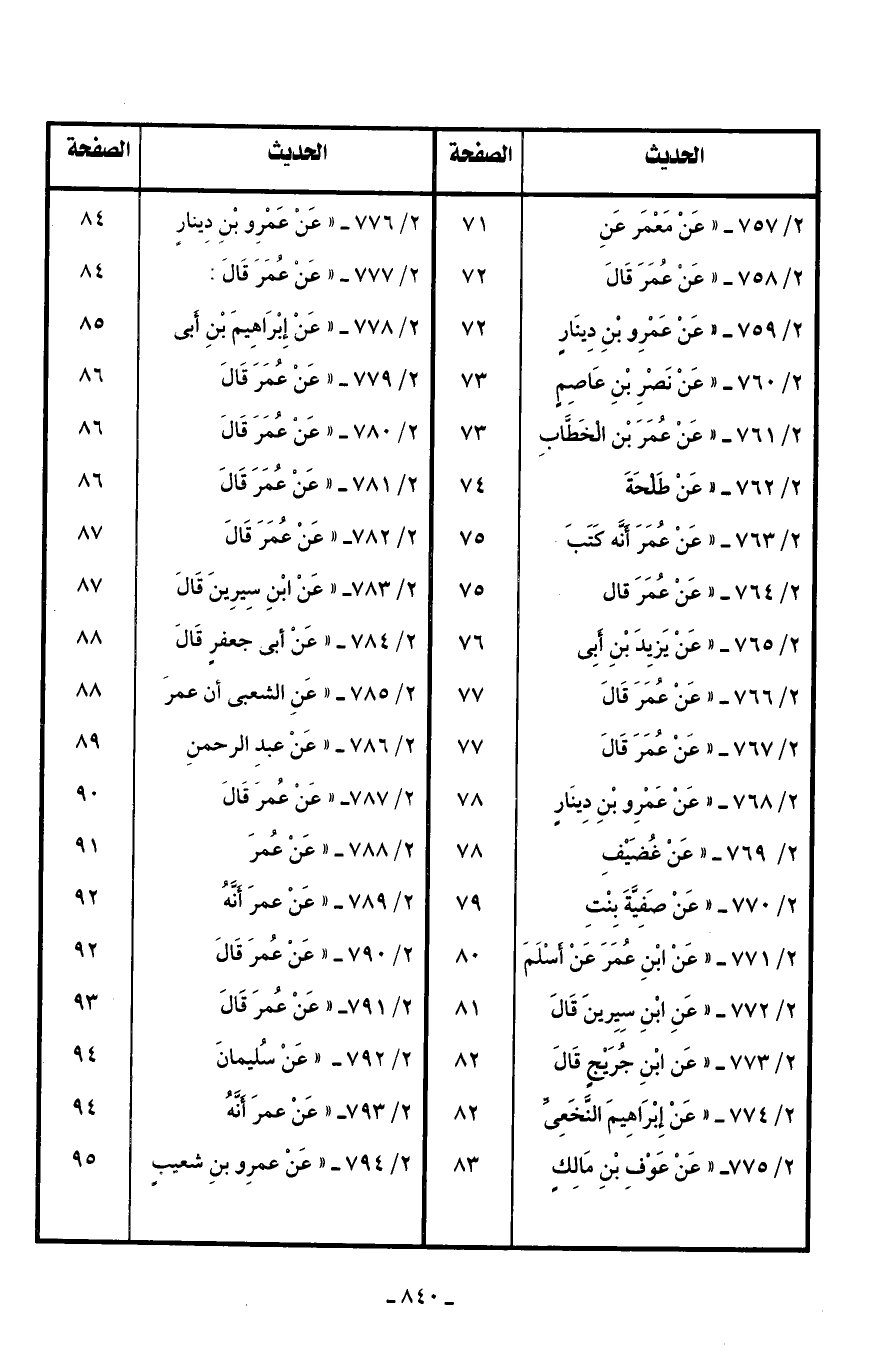 الحديث الصفحة الحديث الصفحة
٢/ ٧٥٧ ـ « عَنْ مَعْمَر عَنِ ٧١
٢/ ٧٥٨ ـ « عَنْ عُمَرَ قَالَ ٧٢
٢/ ٧٥٩ ـ « عَنْ عَمْرِو بْنِ دِينَارٍ ٧٢
٢/ ٧٦٠ ـ « عَنْ نَصْرِ بْنِ عَاصِمٍ ٧٣
٢/ ٧٦١ ـ « عَنْ عُمَرَ بْن الْخَطَّابِ ٧٣
٢/ ٧٦٢ ـ « عَنْ طَلْحَةَ ٧٤
٢/ ٧٦٣ ـ « عَنْ عُمَرَ أَنَّه كَتَبَ ٧٥
٢/ ٧٦٤ ـ « عَنْ عُمَرَ قال ٧٥
٢/ ٧٦٥ ـ « عَنْ يَزِيدَ بْنِ أَبِى ٧٦
٢/ ٧٦٦ ـ « عَنْ عُمَرَ قَالَ ٧٧
٢/ ٧٦٧ ـ « عَنْ عُمَرَ قَالَ ٧٧
٢/ ٧٦٨ ـ « عَنْ عَمْرِو بْنِ دِينَارٍ ٧٨
٢/ ٧٦٩ ـ « عَنْ غُضَيْفِ ٧٨
٢/ ٧٧٠ ـ « عَنْ صَفِيَّةَ بِنْتِ ٧٩
٢/ ٧٧١ ـ « عَنْ ابْنِ عُمَرَ عَنْ أَسْلَمَ ٨٠
٢/ ٧٧٢ ـ « عَنِ ابْنِ سِيرِينَ قَالَ ٨١
٢/ ٧٧٣ ـ « عَن ابْنِ جُرَيْجٍ قَالَ ٨٢
٢/ ٧٧٤ ـ « عَنْ إِبْرَاهِيمَ النَّخَعِىِّ ٨٢
٢/ ٧٧٥ـ « عَنْ عَوْفِ بْنِ مَالِكٍ ٨٣
٢/ ٧٧٦ ـ « عَنْ عَمْرِو بْنِ دِينارٍ ٨٤
٢/ ٧٧٧ ـ « عَنْ عُمَرَ قَالَ : ٨٤
٢/ ٧٧٨ ـ « عَنْ إِبْرَاهِيمَ بْنِ أَبى ٨٥
٢/ ٧٧٩ ـ « عَنْ عُمَرَ قَالَ ٨٦
٢/ ٧٨٠ ـ « عَنْ عُمَرَ قَالَ ٨٦
٢/ ٧٨١ ـ « عَنْ عُمَرَ قَالَ ٨٦
٢/ ٧٨٢ـ « عَنْ عُمَرَ قَالَ ٨٧
٢/ ٧٨٣ـ « عَنْ ابْنِ سِيرِينَ قَالَ ٨٧
٢/ ٧٨٤ ـ « عَنْ أبى جعفرٍ قَالَ ٨٨
٢/ ٧٨٥ ـ « عَنِ الشعبى أن عمرَ ٨٨
٢/ ٧٨٦ ـ « عَنْ عبدِ الرحمنِ ٨٩
٢/ ٧٨٧ـ « عَنْ عُمرَ قَالَ ٩٠
٢/ ٧٨٨ ـ « عَنْ عُمرَ ٩١
٢/ ٧٨٩ ـ « عَنْ عمرَ أَنَّهُ ٩٢
٢/ ٧٩٠ ـ « عَنْ عُمرَ قَالَ ٩٢
٢/ ٧٩١ـ « عَنْ عُمرَ قَالَ ٩٣
٢/ ٧٩٢ ـ « عَنْ سُليمانَ ٩٤
٢/ ٧٩٣ـ « عَنْ عمرَ أَنَّهُ ٩٤
٢/ ٧٩٤ ـ « عَنْ عمرِو بنِ شعيبٍ ٩٥
ـ ٨٤٠ ـ